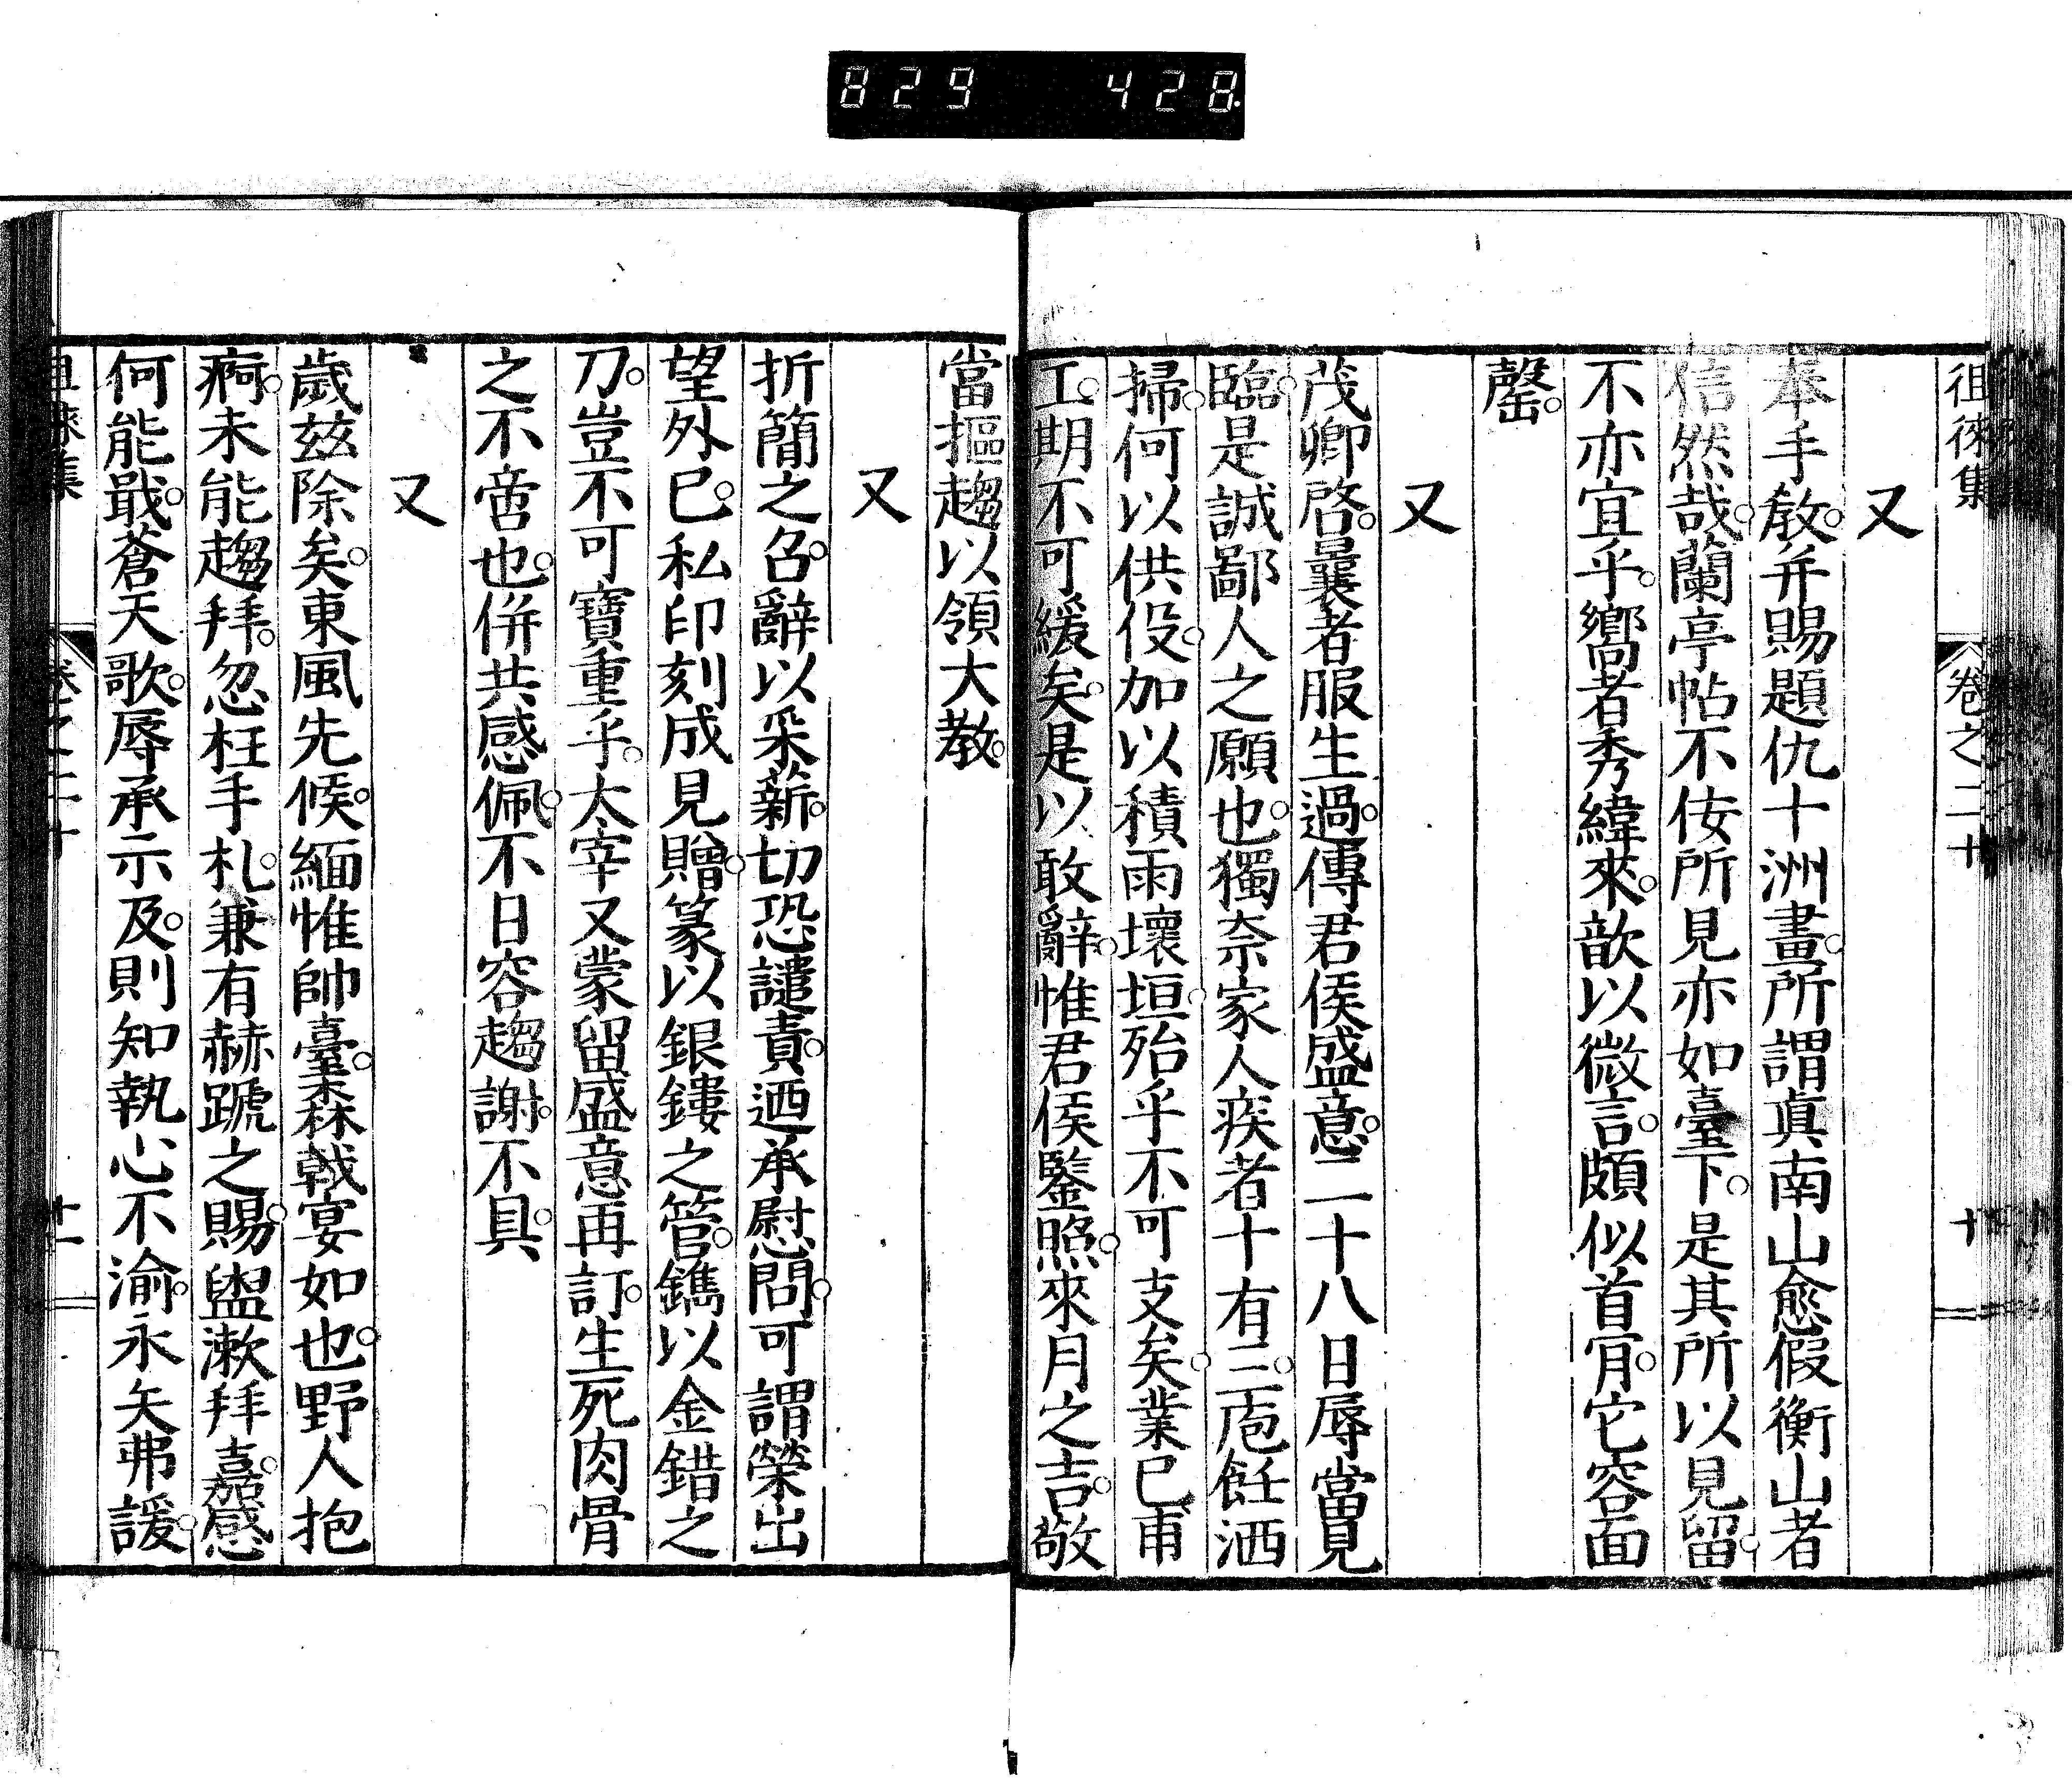 829 428
徂徠集 卷之二十 十
又
奉手教。并賜題仇十洲畫。所謂眞南山愈假衡山者
信然哉。蘭亭帖不佞所見亦如臺下。是其所以見留。
不亦宜乎。嚮者秀緯來。歆以微言。頗似首肎。它容面
罄。
又
茂卿啓。曩者服生過。傳君侯盛意。二十八日辱當見
臨。是誠鄙人之願也。獨奈家人疾者十有三。庖飪洒
掃。何以供役。加以積雨壞垣。殆乎不可支矣。業已甫
工。期不可緩矣。是以敢辭。惟君侯鑒照。來月之吉。敬
當摳趨以領大教。
又
折簡之召。辭以采薪。切恐譴責。迺承慰問。可謂榮出
望外已。私印刻成見贈。篆以銀鏤之管。鐫以金錯之
刀。豈不可寶重乎。太宰又蒙留盛意再訂。生死肉骨
之不啻也。併共感佩。不日容趨謝。不具。
又
歲玆除矣。東風先候。緬惟帥臺。森戟宴如也。野人抱
痾。未能趨拜。忽枉手札。兼有赫蹏之賜。盥漱拜嘉。感
何能戢。蒼天歌。辱承示及。則知執心不渝。永矢弗諼。
徂徠集 卷之二十 十一